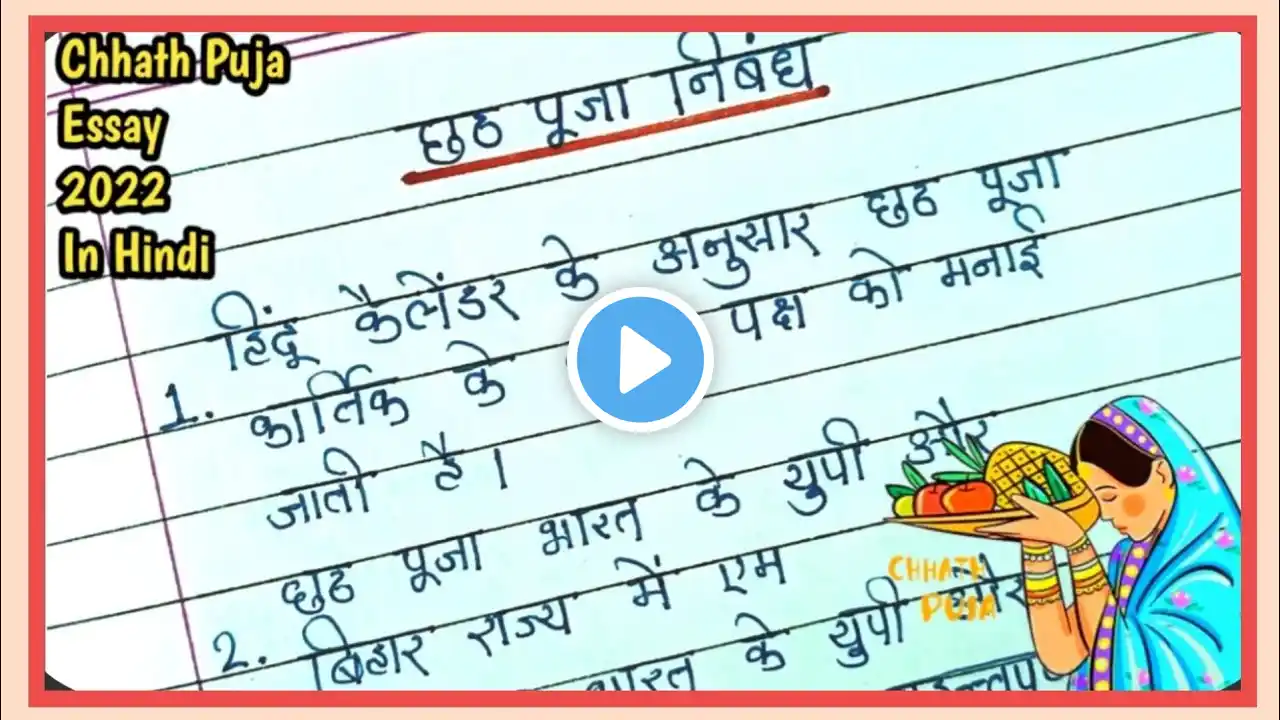 Chhath Puja
Essay
2022
In Hindi
छठ पूजा निबंध
1. हिंदू कैलेंडर के अनुसार छठ पूजा
कार्तिक के पक्ष को मनाई
जाती है।
2. छठ पूजा भारत के युपी और
बिहार राज्य में एम
भारत के युपी और
CHHATH
PUJA